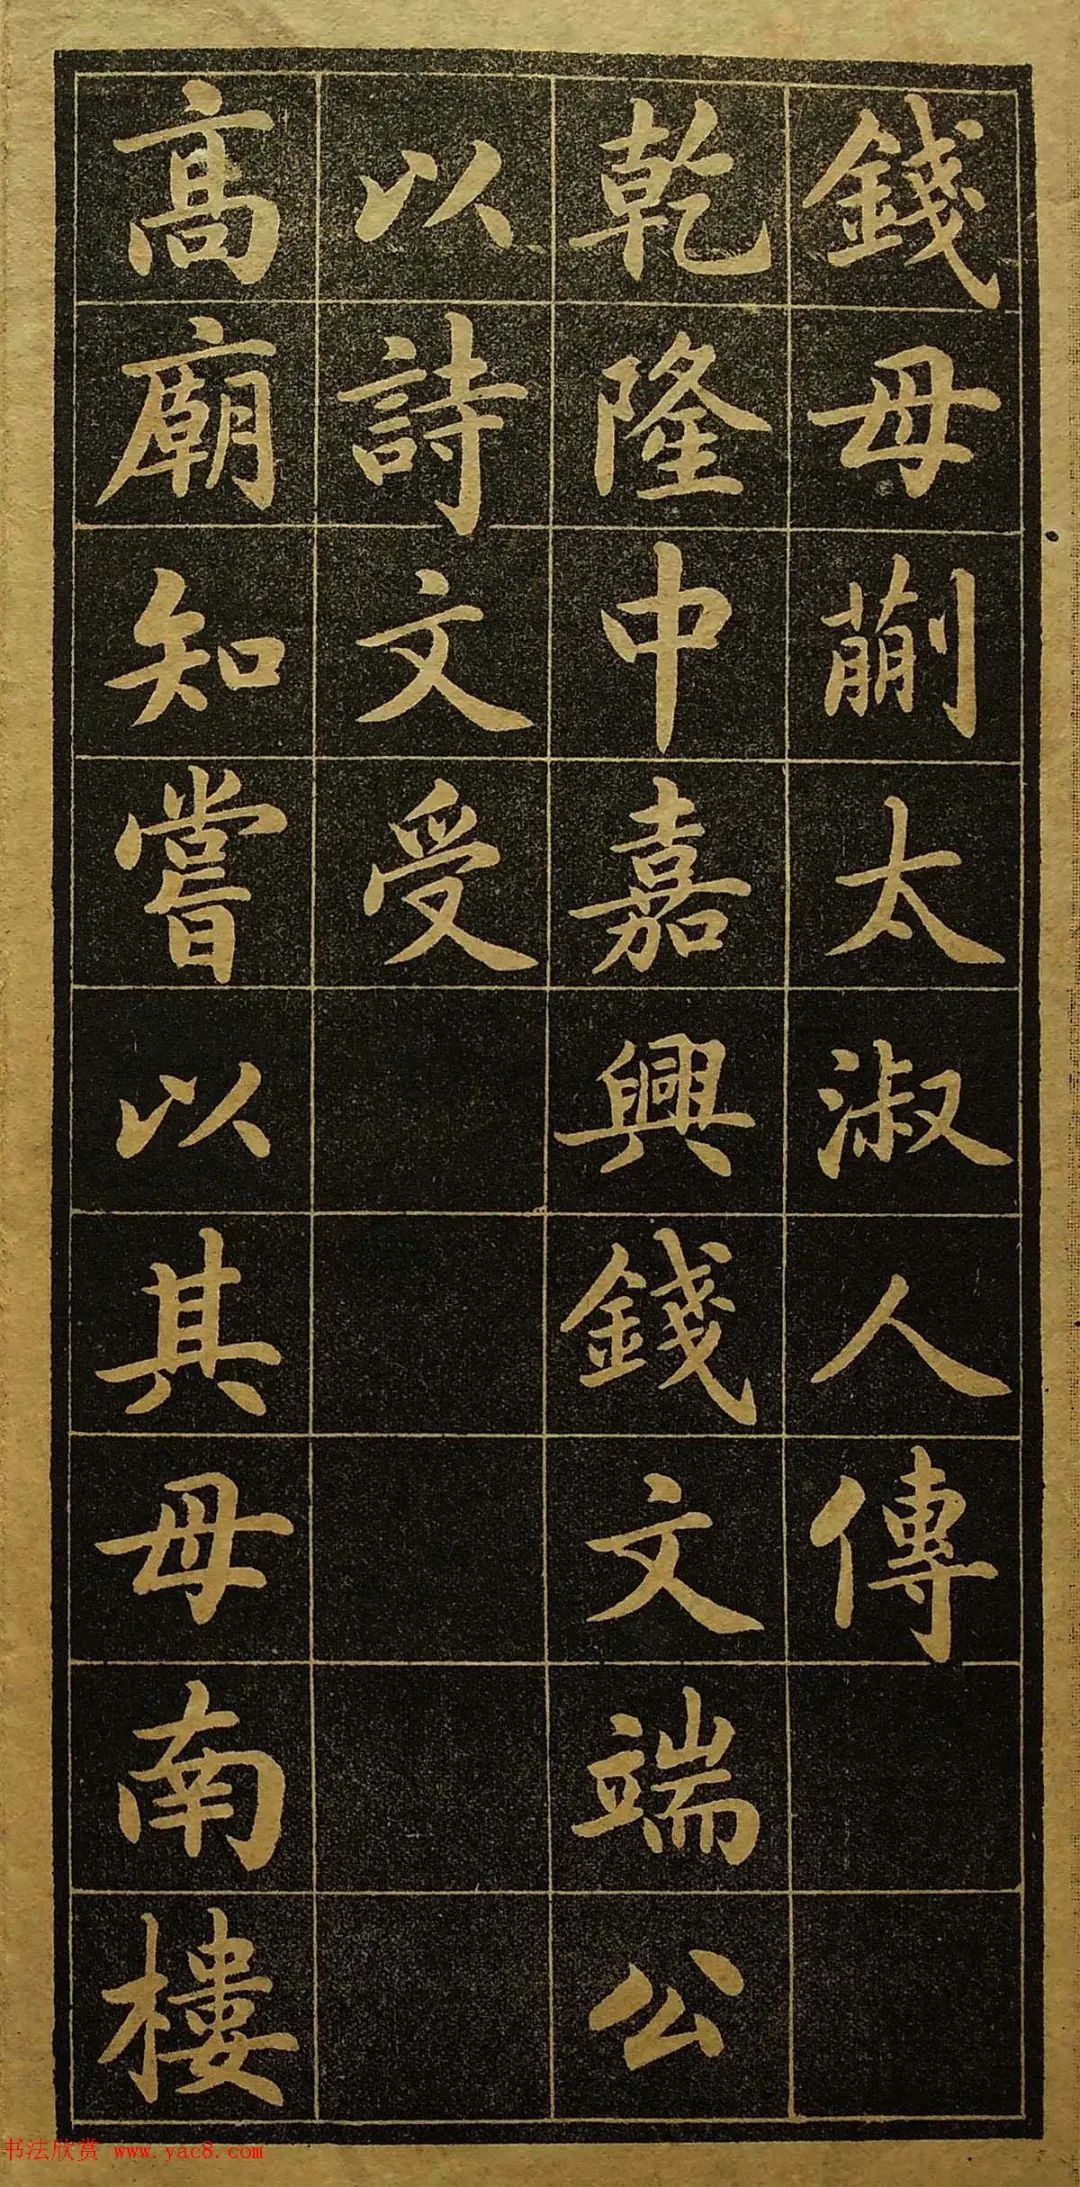 錢母蒯太淑人傳
乾隆中嘉興錢文端公
以詩文受
高廟知嘗以其母南樓
书法欣赏 www.yac8.com